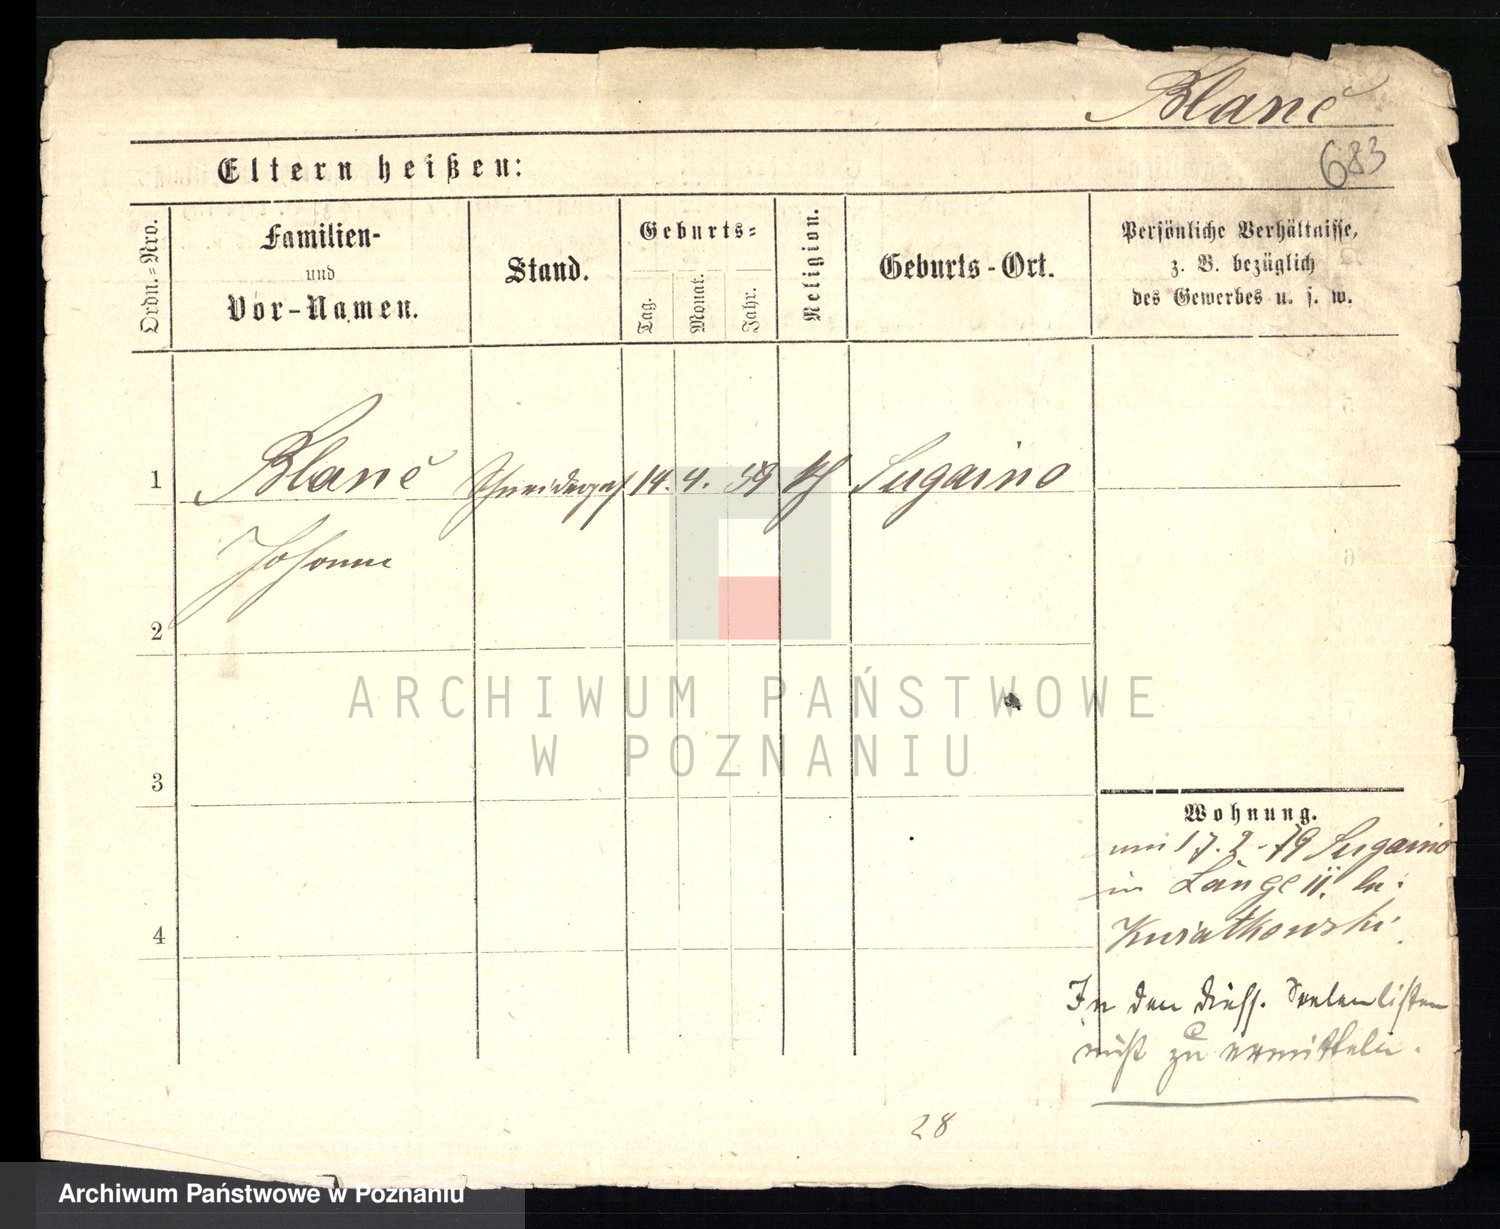 Blanč
683
Eltern heißen:
Ordn.=Nro.
Familien-
und
Vor-Namen.
Stand.
Geburts=
Tag.
Monat.
Jahr.
Religion.
Geburts-Ort.
Persönliche Verhältnisse,
z. B. bezüglich
des Gewerbes u. s. w.
1 Blanč Schneiderges 14. 4. 59 kth Sugaino
Johann
2
3
4
Wohnung.
17. 2-79 Sugaino
in Länge II. bei
Kwiatkowski
In den dies. Seelenlisten
nicht zu ermitteln.
28
ARCHIWUM PAŃSTWOWE
W POZNANIU
Archiwum Państwowe w Poznaniu